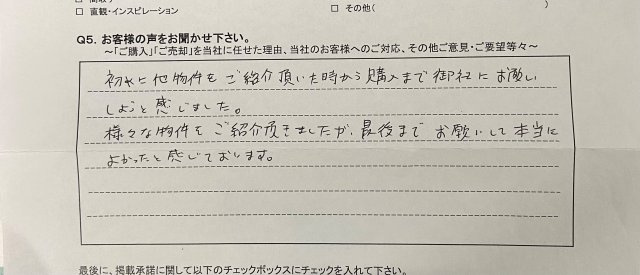 □ 直観・インスピレーション
□ その他(　　　)
Q5. お客様の声をお聞かせ下さい。
～「ご購入」「ご売却」を当社に任せた理由、当社のお客様へのご対応、その他ご意見・ご要望等々～
初めに他物件をご紹介頂いた時から購入まで御社にお願い
しようと感じました。
様々な物件をご紹介頂きましたが、最後までお願いして本当に
よかったと感じております。
最後に、掲載承諾に関して以下のチェックボックスにチェックを入れて下さい。